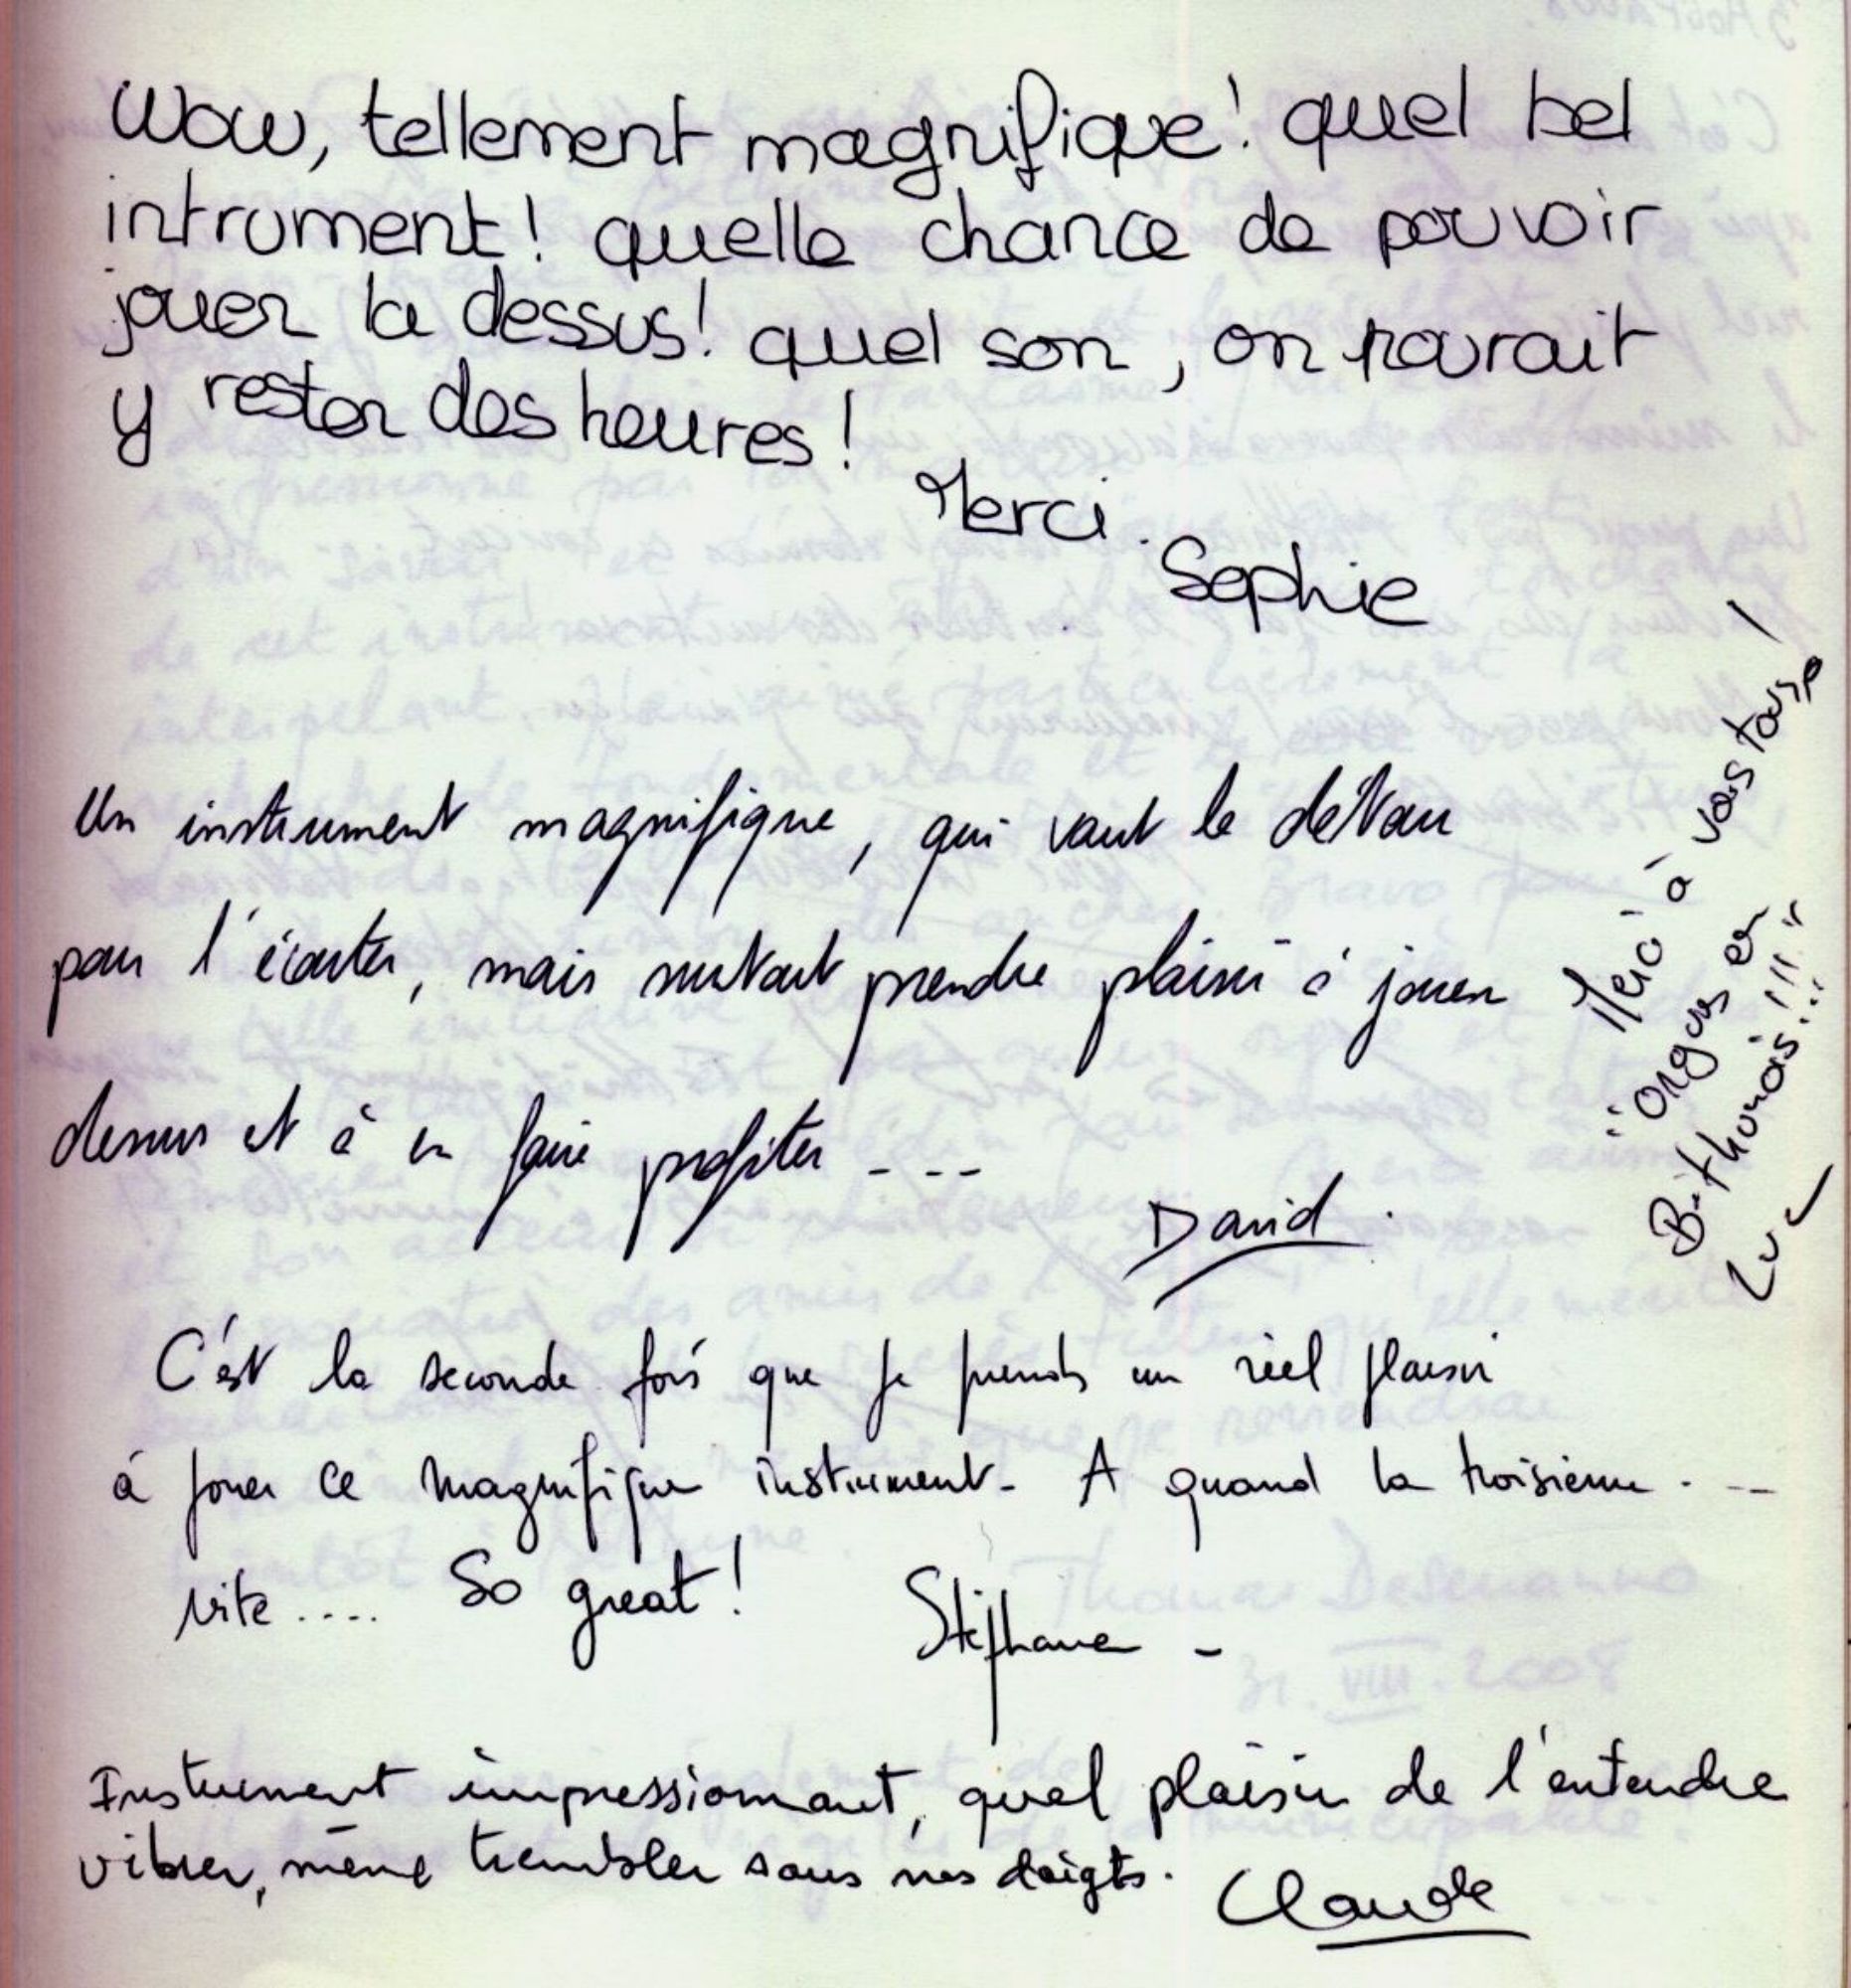 Wow, tellement magnifique! quel bel
intrument! quelle chance de pouvoir
jouer la dessus! quel son, on pourait
y rester des heures!
Merci.
Sophie
Un instrument magnifique, qui vaut le détour
pour l'écouter, mais surtout prendre plaisir à jouer
dessus et à en faire profiter ....
David.
Merci à vous tous !
"Orgues en
Béthunois!!!"
Luc
C'est la seconde fois que je prends un réel plaisir
à jouer ce magnifique instrument. A quand la troisième ...
vite .... So great!
Stéphane -
Instrument impressionnant, quel plaisir de l'entendre
vibrer, même trembler sous nos doigts.
Claude